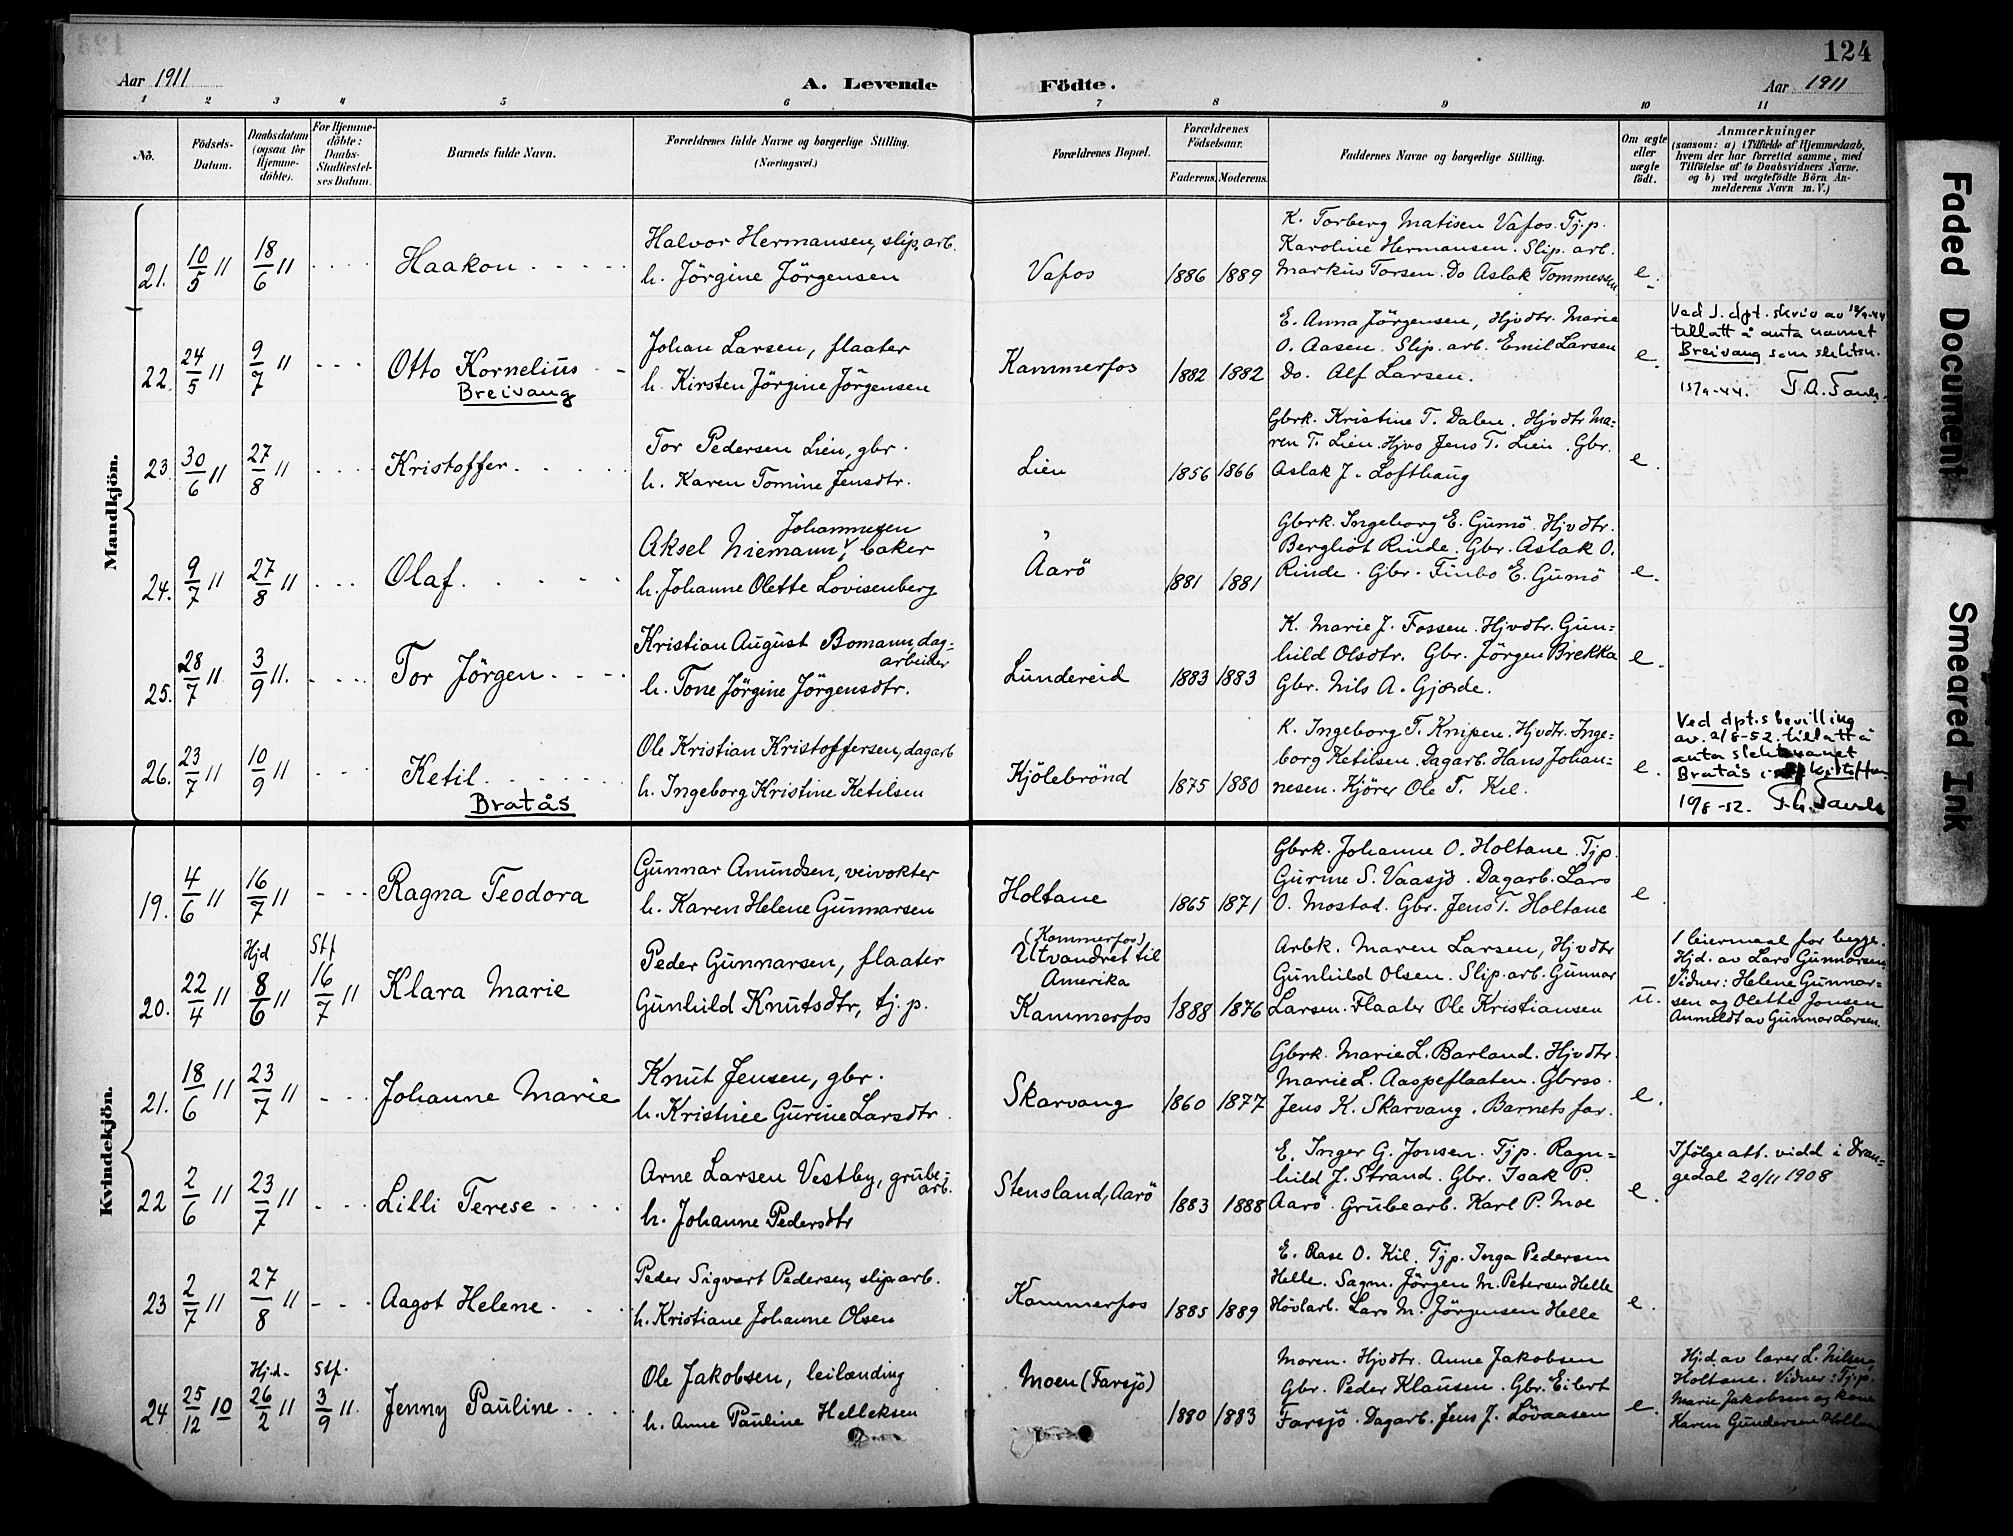 124
Aar 1911
A. Levende Födte.
Aar 1911
1 2 3 4 5 6 7 8 9 10 11
No.
Födsels-
Datum.
Daabsdatum
(ogsaa for
Hjemme-
döbte).
For Hjemme-
döbte:
Daabs-
Stadfæstel-
ses Datum.
Barnets fulde Navn.
Forældrenes fulde Navne og borgerlige Stilling.
(Næringsvei.)
Forældrenes Bopæl.
Forældrenes
Födselsaar.
Faderens. Moderens.
Faddernes Navne og borgerlige Stilling.
Om ægte
eller
uægte
födt.
Anmærkninger
(saasom: a) i Tilfælde af Hjemmedaab,
hvem der har forrettet samme, med
Tilföielse af to Daabsvidners Navne.
og b) ved uægtefödte Börn An-
melderens Navn m. V.)
Mandkjön.
21. 10/5 11 18/6 11 Haakon
Halvor Hermansen, slip.arb.
h. Jörgine Jörgensen
Vafos 1886 1889
K. Torberg Matisen Vafos. Tj.p.
Karoline Hermansen. Slip. arb.
Markus Torsen. Do Aslak Tommesen
e.
22. 24/5 11 9/7 11 Otto Kornelius
Breivang
Johan Larsen, flaater
h. Kirsten Jörgine Jörgensen
Kammerfos 1882 1882
E. Anna Jörgensen, Hjvdtr. Marie
O. Aasen. Slip. arb. Emil Larsen
Do. Alf Larsen.
e.
Ved J. dpt. skriv av
tillatt å anta namet
Breivang som slektsn.
15/9-44.
23 30/6 11 27/8 11 Kristoffer
Tor Pedersen Lien, gbr.
h. Karen Tomine Jensdtr.
Lien 1856 1866
Gbrk. Kristine T. Dalen. Hjvdtr Ma=
ren T. Lien. Hjvs Jens T. Lien. Gbr.
Aslak J. Lofthaug
e.
24. 9/7 11 27/8 11 Olaf
Johannesen
Aksel Niemann, baker
h. Johanne Olette Lovisenberg
Aarö 1881 1881
Gbrk. Ingeborg E. Gumö. Hjvdtr.
Bergliot Rinde. Gbr. Aslak O.
Rinde. Gbr. Finbo E. Gumö
e.
25. 28/7 11 3/9 11. Tor Jörgen
Kristian August Bomann, dag=
arbeider
h. Tone Jörgine Jörgensdtr.
Lundereid 1883 1883
K. Marie J. Fossen. Hjvdtr. Gun=
hild Olsdtr. Gbr. Jörgen Brekka
Gbr. Nils A. Gjærde.
e.
26. 23/7 11 10/9 11 Ketil
Bratås
Ole Kristian Kristoffersen, dagarb
h. Ingeborg Kristine Ketilsen
Kjölebrönd 1875 1880
K. Ingeborg T. Knipen. Hjvdtr. Inge=
borg Ketilsen. Dagarb. Hans Johan=
nesen. Kjörer Ole T. Kil.
e.
Ved dpt.s bevilling
av. 2/8-52. tillatt å
anta slektsnamet
Bratås
19/8-52.
Kvindekjön.
19. 4/6 11 16/7 11 Ragna Teodora
Gunnar Amundsen, veivokter
h. Karen Helene Gunnarsen
Holtane 1865 1871
Gbrk. Johanne O. Holtane. Tjp.
Gurine S. Vaasjö. Dagarb. Lars
O. Mostad. Gbr. Jens T. Holtane
e.
20. 22/4 11 Hjd 8/6 11 Stf 16/7 11 Klara Marie
Peder Gunnarsen, flaater
Gunhild Knutsdtr, tj.p.
(Kammerfos)
Utvandret til
Amerika
Kammerfos 1888 1876
Arbk. Maren Larsen, Hjvdtr
Gunhild Olsen. Slip.arb. Gunnar
Larsen. Flaater Ole Kristiansen
u.
1 leiermaal for begge.
Hjd. av Lars Gunnarsen
Vidner: Helene Gunnar=
sen og Olette Jonsen
Anmeldt av Gunnar Larsen.
21. 18/6 11 23/7 11 Johanne Marie
Knut Jensen, gbr.
h. Kristine Gurine Larsdtr.
Skarvang 1860 1877
Gbrk. Marie L. Barland. Hjvdtr.
Marie L. Aaspeflaaten. Gbrss.
Jens K. Skarvang. Barnets far.
e.
22 2/6 11 23/7 11 Lilli Terese
Arne Larsen Vestby, grube=
arb.
h. Johanne Pedersdtr
Stensland, Aarö 1883 1888
E. Inger G. Jonsen. Tjp. Ragn=
hild J. Strand. Gbr. Isak P.
Aarö. Grubearb. Karl P. Moe
e.
Ifölge att. vidd i Dran=
gedal 20/11 1908
23 2/7 11 27/8 11 Aagot Helene
Peder Sigvart Pedersen, slip.arb.
h. Kristiane Johanne Olsen
Kammerfos 1885 1889
E. Aase O. Kil. Tjp. Inga Pedersen
Helle. Sagm. Jörgen M. Petersen Helle
Hövlarb. Lars M. Jörgensen Helle
e.
24 25/12 10 Hjd. 26/2 11 Stf. 3/9 11. Jenny Pauline
Ole Jakobsen, leilænding
h. Anne Pauline Helleksen
Moen (Farsjö) 1880 1883
Moren. Hjvdtr. Anne Jakobsen
Gbr. Peder Klausen. Gbr. Eilert
Farsjö. Dagarb. Jens J. Lövaasen
e.
Hjd av lærer L. Nilsen,
Holtane. Vidner: Tj.p.
Marie Jakobsen og kone
Karen Gundersen
Faded Document
Smeared Ink